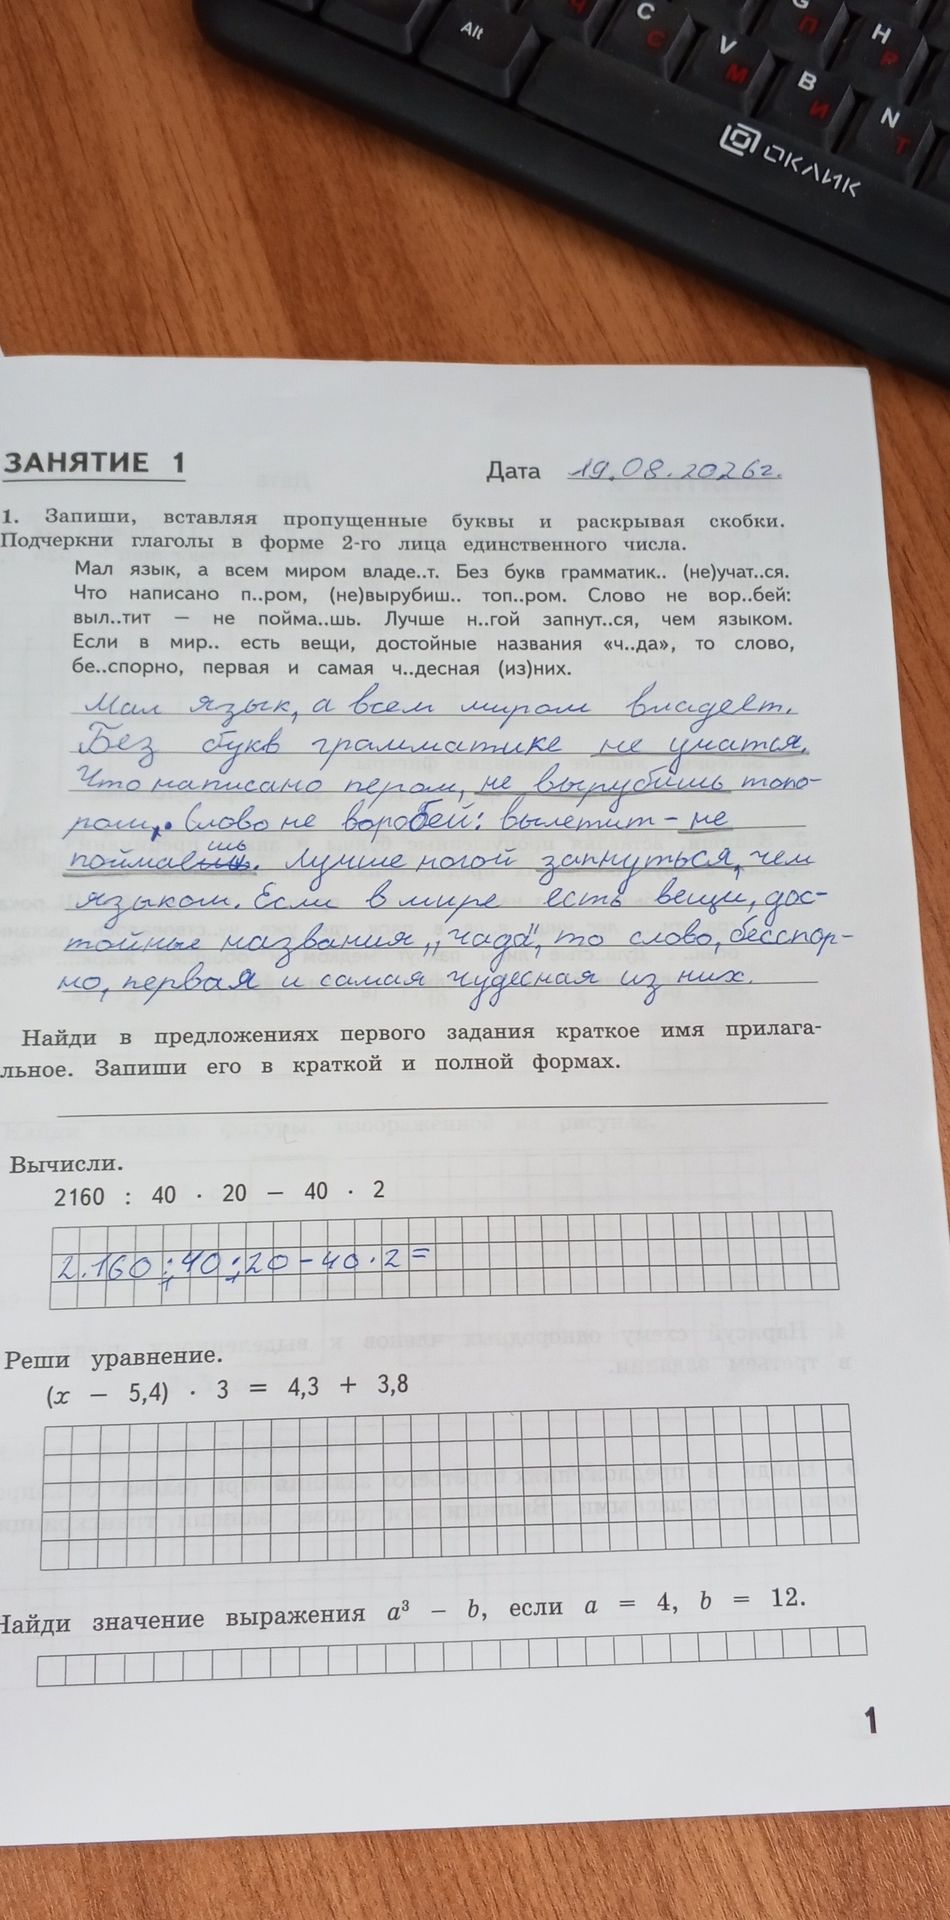 Alt
C С
V М
G П
B И
H Р
N Т
ОКЛИК
ЗАНЯТИЕ 1
Дата 19.08.2026г.
1. Запиши, вставляя пропущенные буквы и раскрывая скобки.
Подчеркни глаголы в форме 2-го лица единственного числа.
Мал язык, а всем миром владе..т. Без букв грамматик.. (не)учат..ся.
Что написано п..ром, (не)вырубиш.. топ..ром. Слово не вор..бей:
выл..тит — не пойма..шь. Лучше н..гой запнут..ся, чем языком.
Если в мир.. есть вещи, достойные названия «ч..да», то слово,
бе..спорно, первая и самая ч..десная (из)них.
Мал язык, а всем миром владеет.
Без букв грамматике не учатся.
Что написано пером, не вырубишь топо-
ром. Слово не воробей: вылетит - не
поймаешь. Лучше ногой запнуться, чем
языком. Если в мире есть вещи, дос-
тойные названия „чада“, то слово, бесспор-
но, первая и самая чудесная из них.
Найди в предложениях первого задания краткое имя прилага-
льное. Запиши его в краткой и полной формах.
Вычисли.
2160 : 40 · 20 − 40 · 2
2.160:40:20-40·2=
Реши уравнение.
(x − 5,4) · 3 = 4,3 + 3,8
Найди значение выражения a³ − b, если a = 4, b = 12.
1